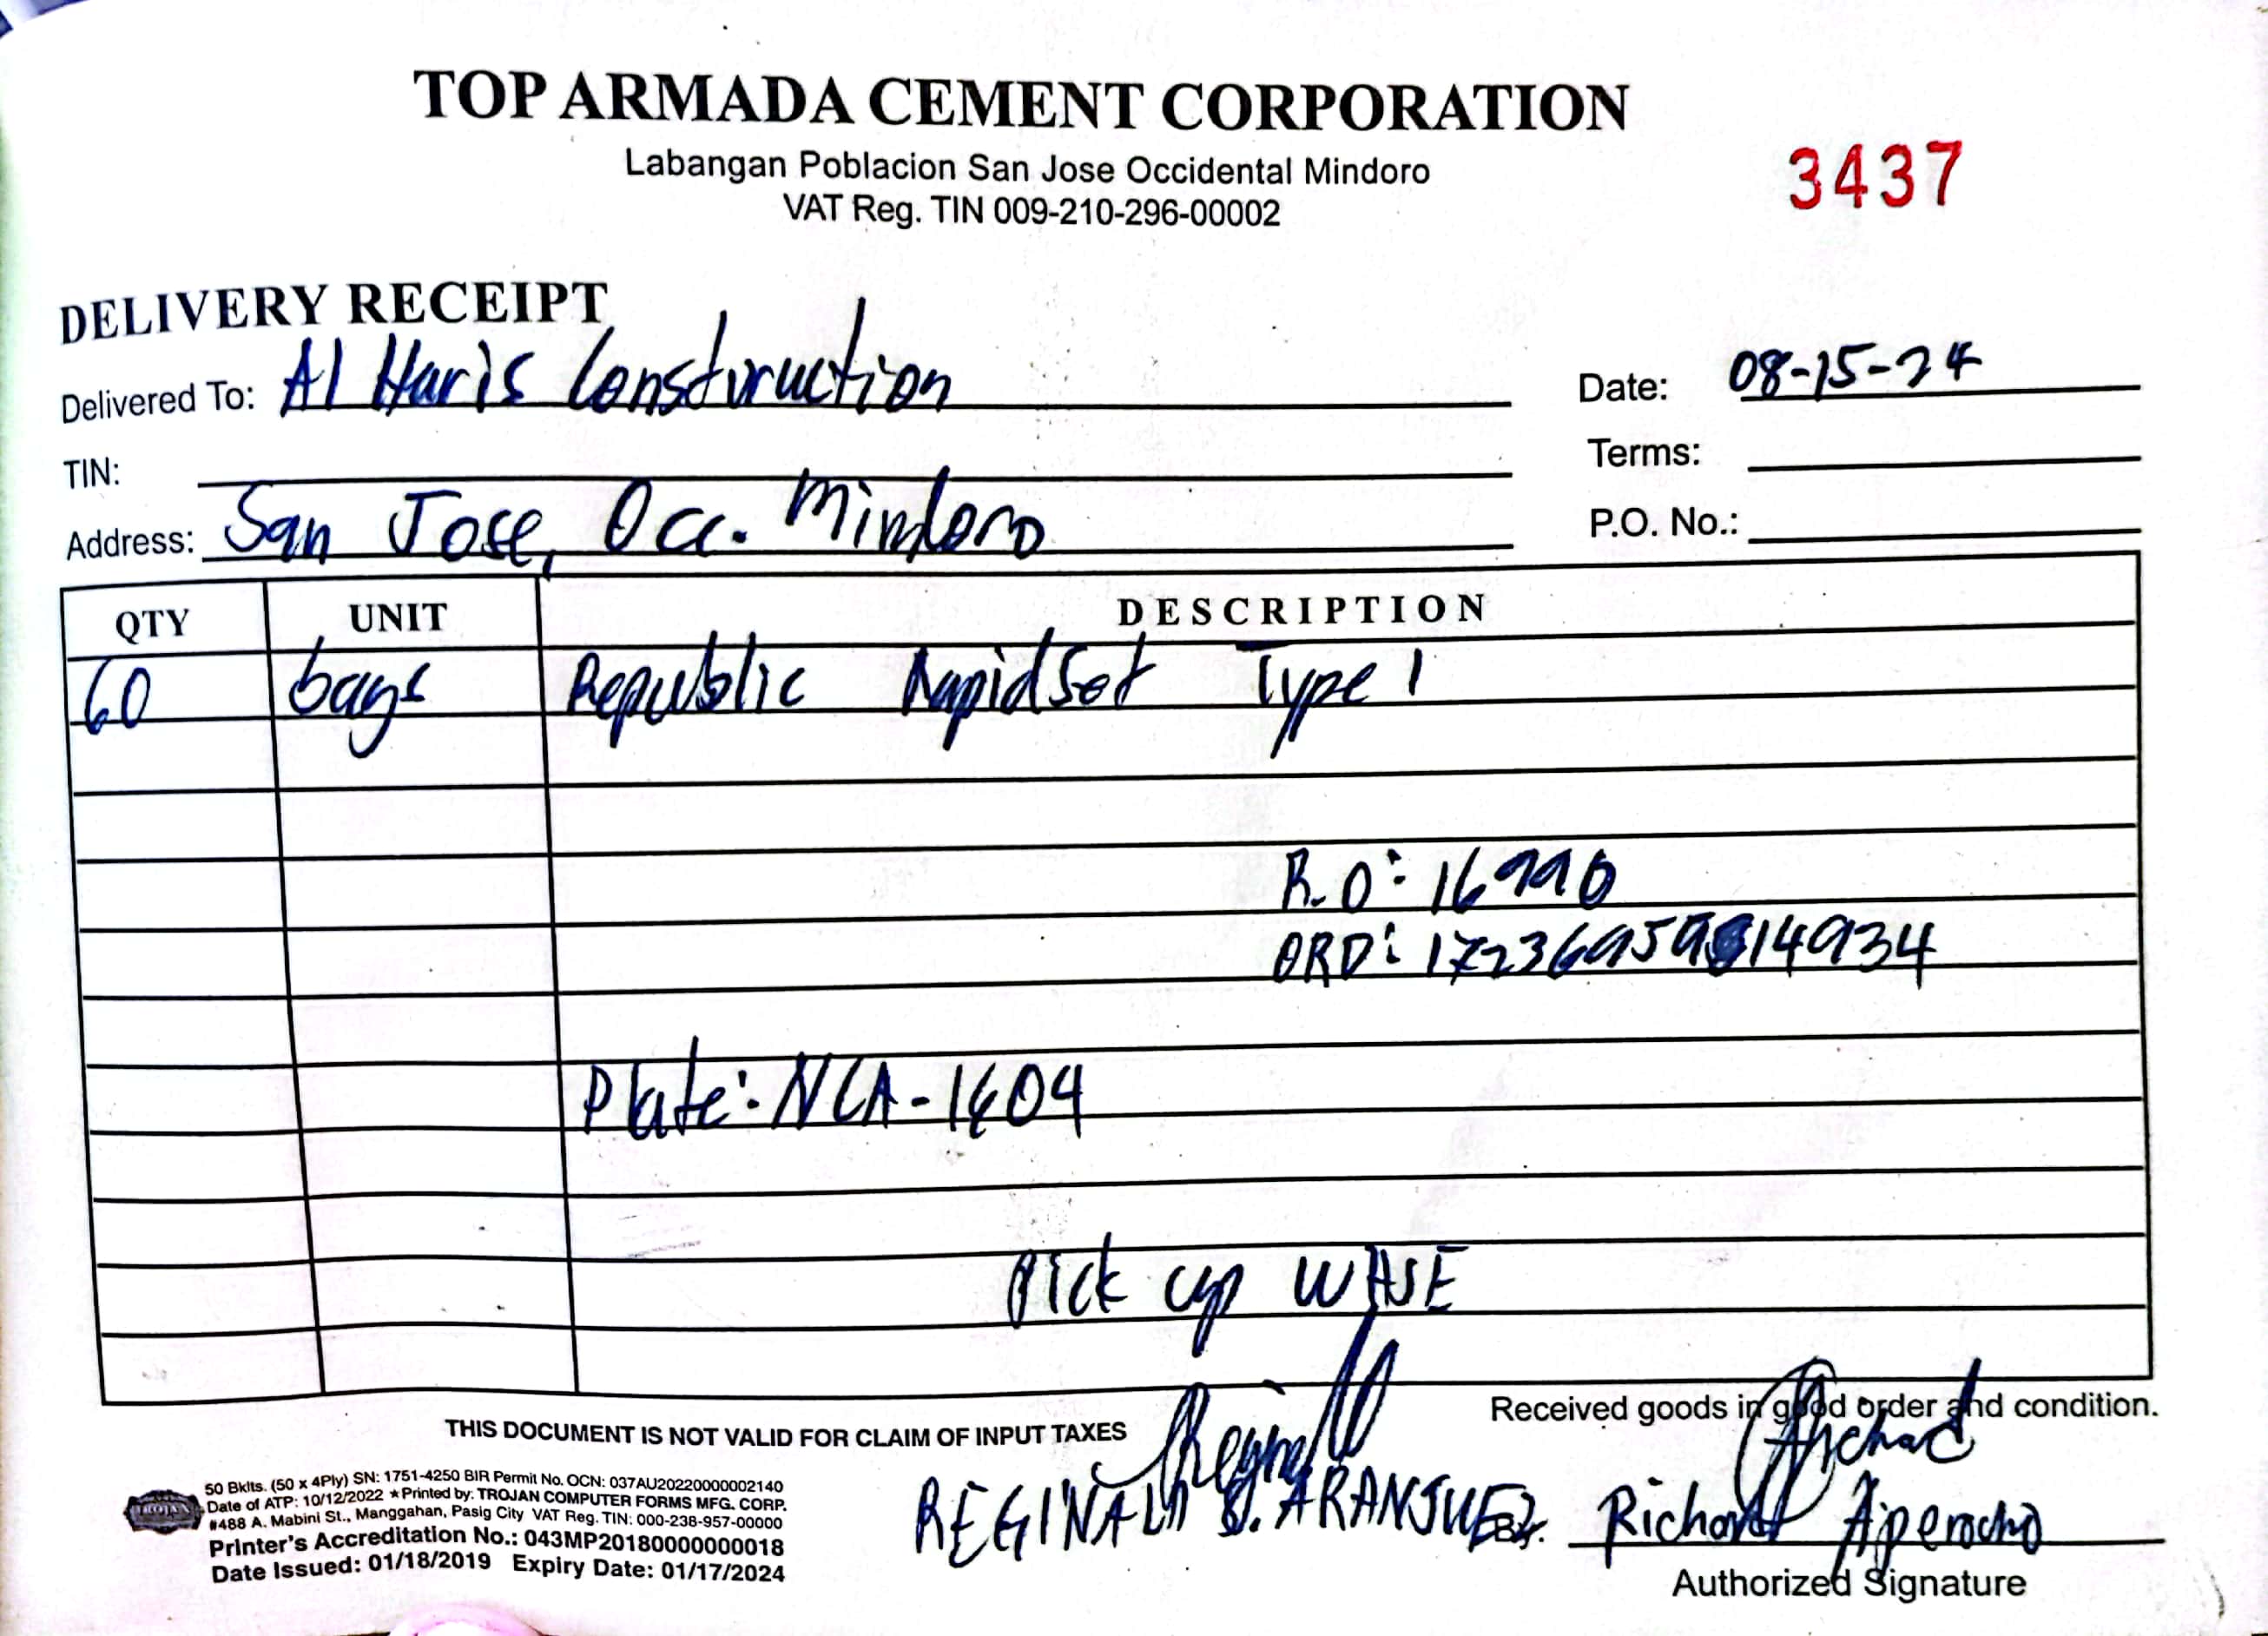 TOP ARMADA CEMENT CORPORATION
Labangan Poblacion San Jose Occidental Mindoro
VAT Reg. TIN 009-210-296-00002
3437
DELIVERY RECEIPT
Delivered To: Al Haris Construction
Date: 08-15-24
TIN:
Terms:
Address: San Jose, Occ. Mindoro
P.O. No.:
QTY UNIT DESCRIPTION
60 bags Republic RapidSet Type 1
R.O:
ORD:
Plate: NCA-1604
Pick up
Received goods in good order and condition.
THIS DOCUMENT IS NOT VALID FOR CLAIM OF INPUT TAXES
50 Bklts. (50 x 4Ply) SN: 1751-4250 BIR Permit No. OCN: 037AU20220000002140
Date of ATP: 10/12/2022 ★ Printed by: TROJAN COMPUTER FORMS MFG. CORP.
#488 A. Mabini St., Manggahan, Pasig City VAT Reg. TIN: 000-238-957-00000
Printer's Accreditation No.: 043MP20180000000018
Date Issued: 01/18/2019 Expiry Date: 01/17/2024
TROJAN
REGINALD S. ARANJUEZ
By: Richard Aperocho
Authorized Signature